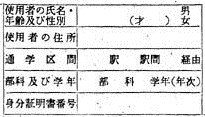 使用者の氏名・
年齢及び性別 （ 才） 男
女
使用者の住所
通学区間 駅 駅間 経由
部科及び学年 部 科 学年(年次)
身分証明書番号